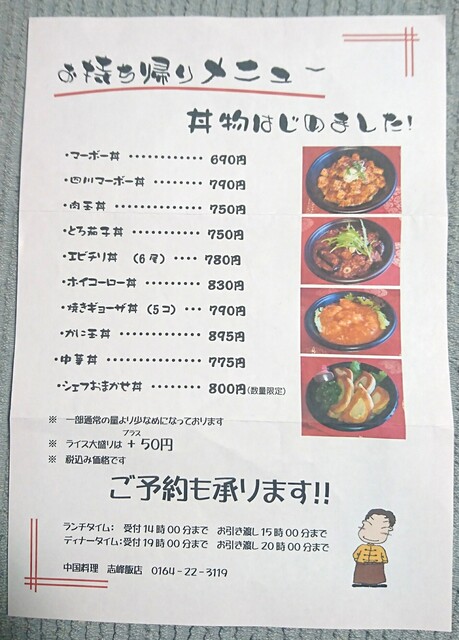 お持ち帰りメニュー
丼物はじめました!
・マーボー丼 ············ 690円
・四川マーボー丼 ········· 790円
・肉玉丼 ·············· 750円
・とろ茄子丼 ············ 750円
・エビチリ丼 (6ケ) ···· 780円
・ホイコーロー丼 ········· 830円
・焼きギョーザ丼 (5コ) ··· 790円
・かに玉丼 ············ 895円
・中華丼 ············· 775円
・シェフおまかせ丼 ········ 800円(数量限定)
※ 一部通常の量より少なめになっております
プラス
※ ライス大盛りは + 50円
※ 税込み価格です
ご予約も承ります!!
ランチタイム: 受付14時00分まで お引き渡し15時00分まで
ディナータイム:受付19時00分まで お引き渡し20時00分まで
中国料理 志峰飯店 0164-22-3119